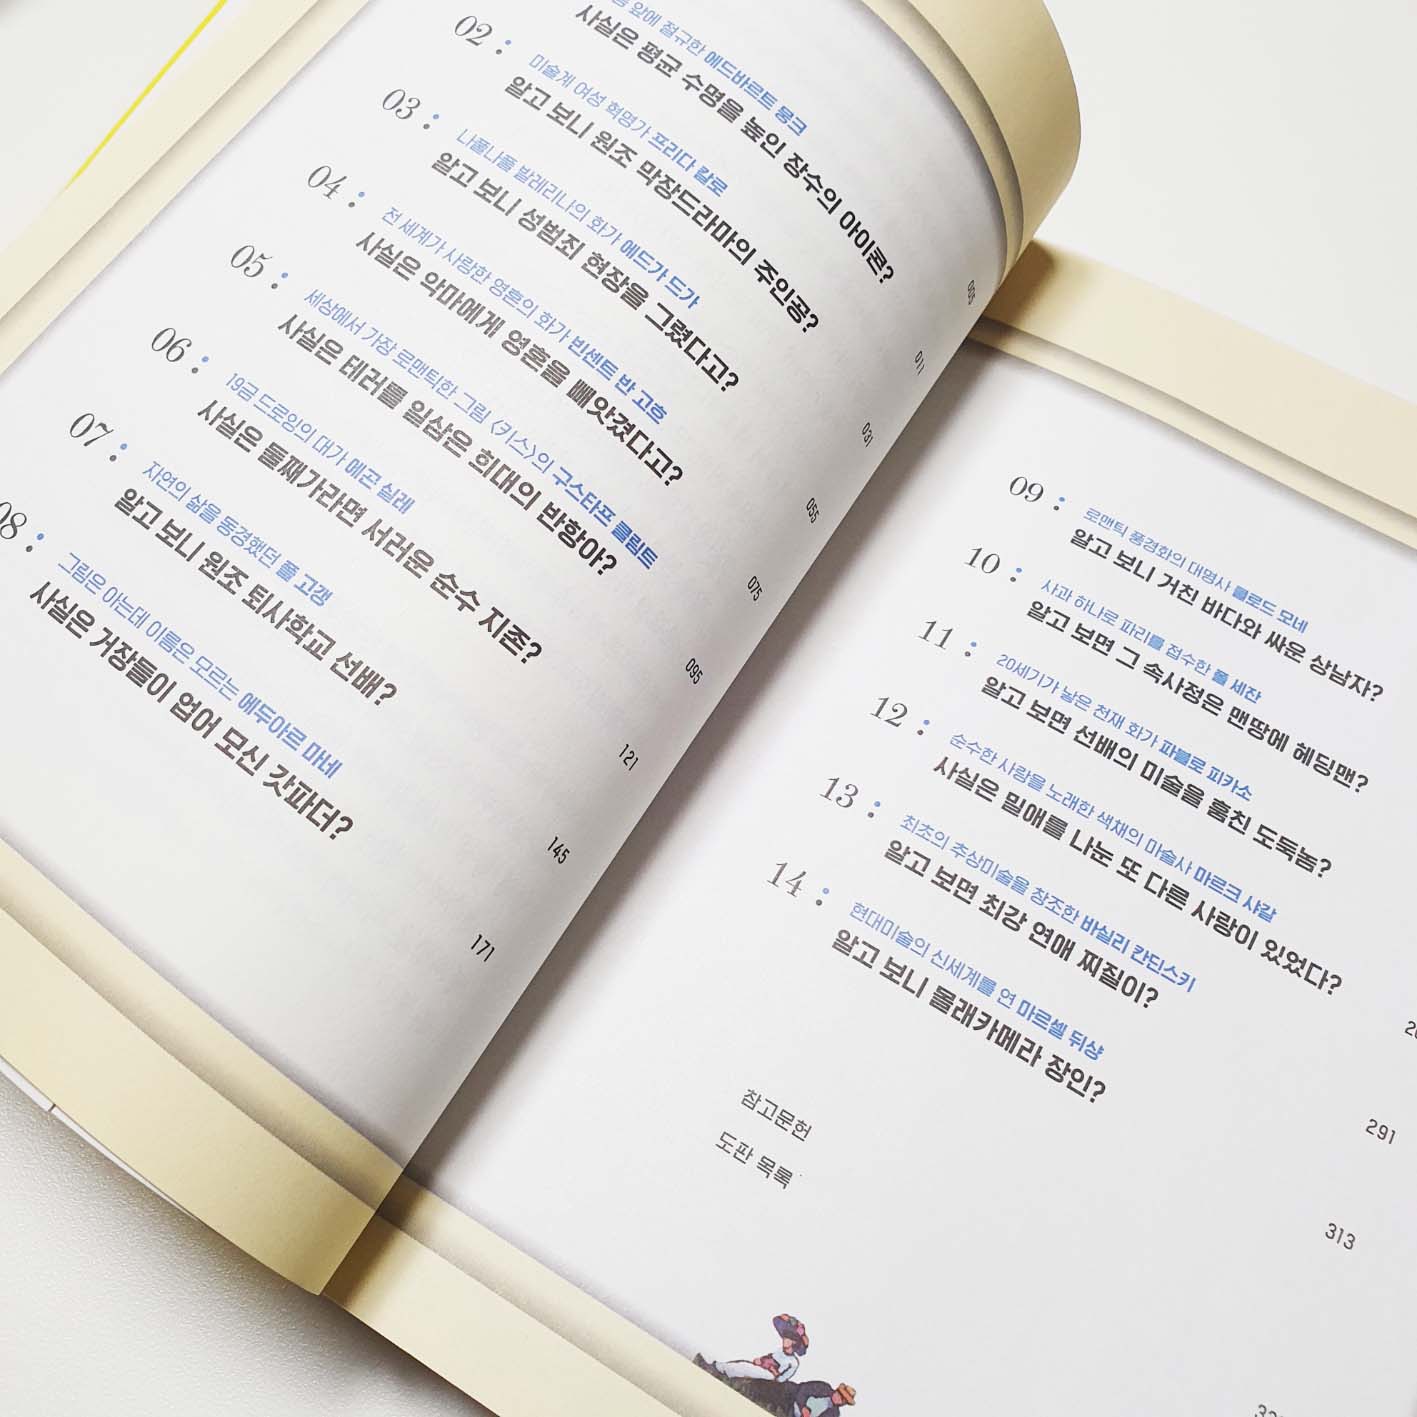 앞에 절규한 에드바르트 뭉크
사실은 평균 수명을 높인 장수의 아이콘?
02 :
미술계 여성 혁명가 프리다 칼로
알고 보니 원조 막장드라마의 주인공?
03 :
나풀나풀 발레리나의 화가 에드가 드가
알고 보니 성범죄 현장을 그렸다고?
04 :
전 세계가 사랑한 영혼의 화가 빈센트 반 고흐
사실은 악마에게 영혼을 빼앗겼다고?
05 :
세상에서 가장 로맨틱한 그림 <키스>의 구스타프 클림트
사실은 테러를 일삼은 희대의 반항아?
06 :
19금 드로잉의 대가 에곤 실레
사실은 둘째가라면 서러운 순수 지존?
07 :
자연의 삶을 동경했던 폴 고갱
알고 보니 원조 퇴사학교 선배?
08 :
그림은 아는데 이름은 모르는 에두아르 마네
사실은 거장들이 업어 모신 갓파더?
005
011
031
055
075
095
121
145
171
09 :
로맨틱 풍경화의 대명사 클로드 모네
알고 보니 거친 바다와 싸운 상남자?
10 :
사과 하나로 파리를 접수한 폴 세잔
알고 보면 그 속사정은 맨땅에 헤딩맨?
11 :
20세기가 낳은 천재 화가 파블로 피카소
알고 보면 선배의 미술을 훔친 도둑놈?
12 :
순수한 사랑을 노래한 색채의 마술사 마르크 샤갈
사실은 밀애를 나눈 또 다른 사랑이 있었다?
13 :
최초의 추상미술을 창조한 바실리 칸딘스키
알고 보면 최강 연애 찌질이?
14 :
현대미술의 신세계를 연 마르셀 뒤샹
알고 보니 몰래카메라 장인?
참고문헌
도판 목록
291
313